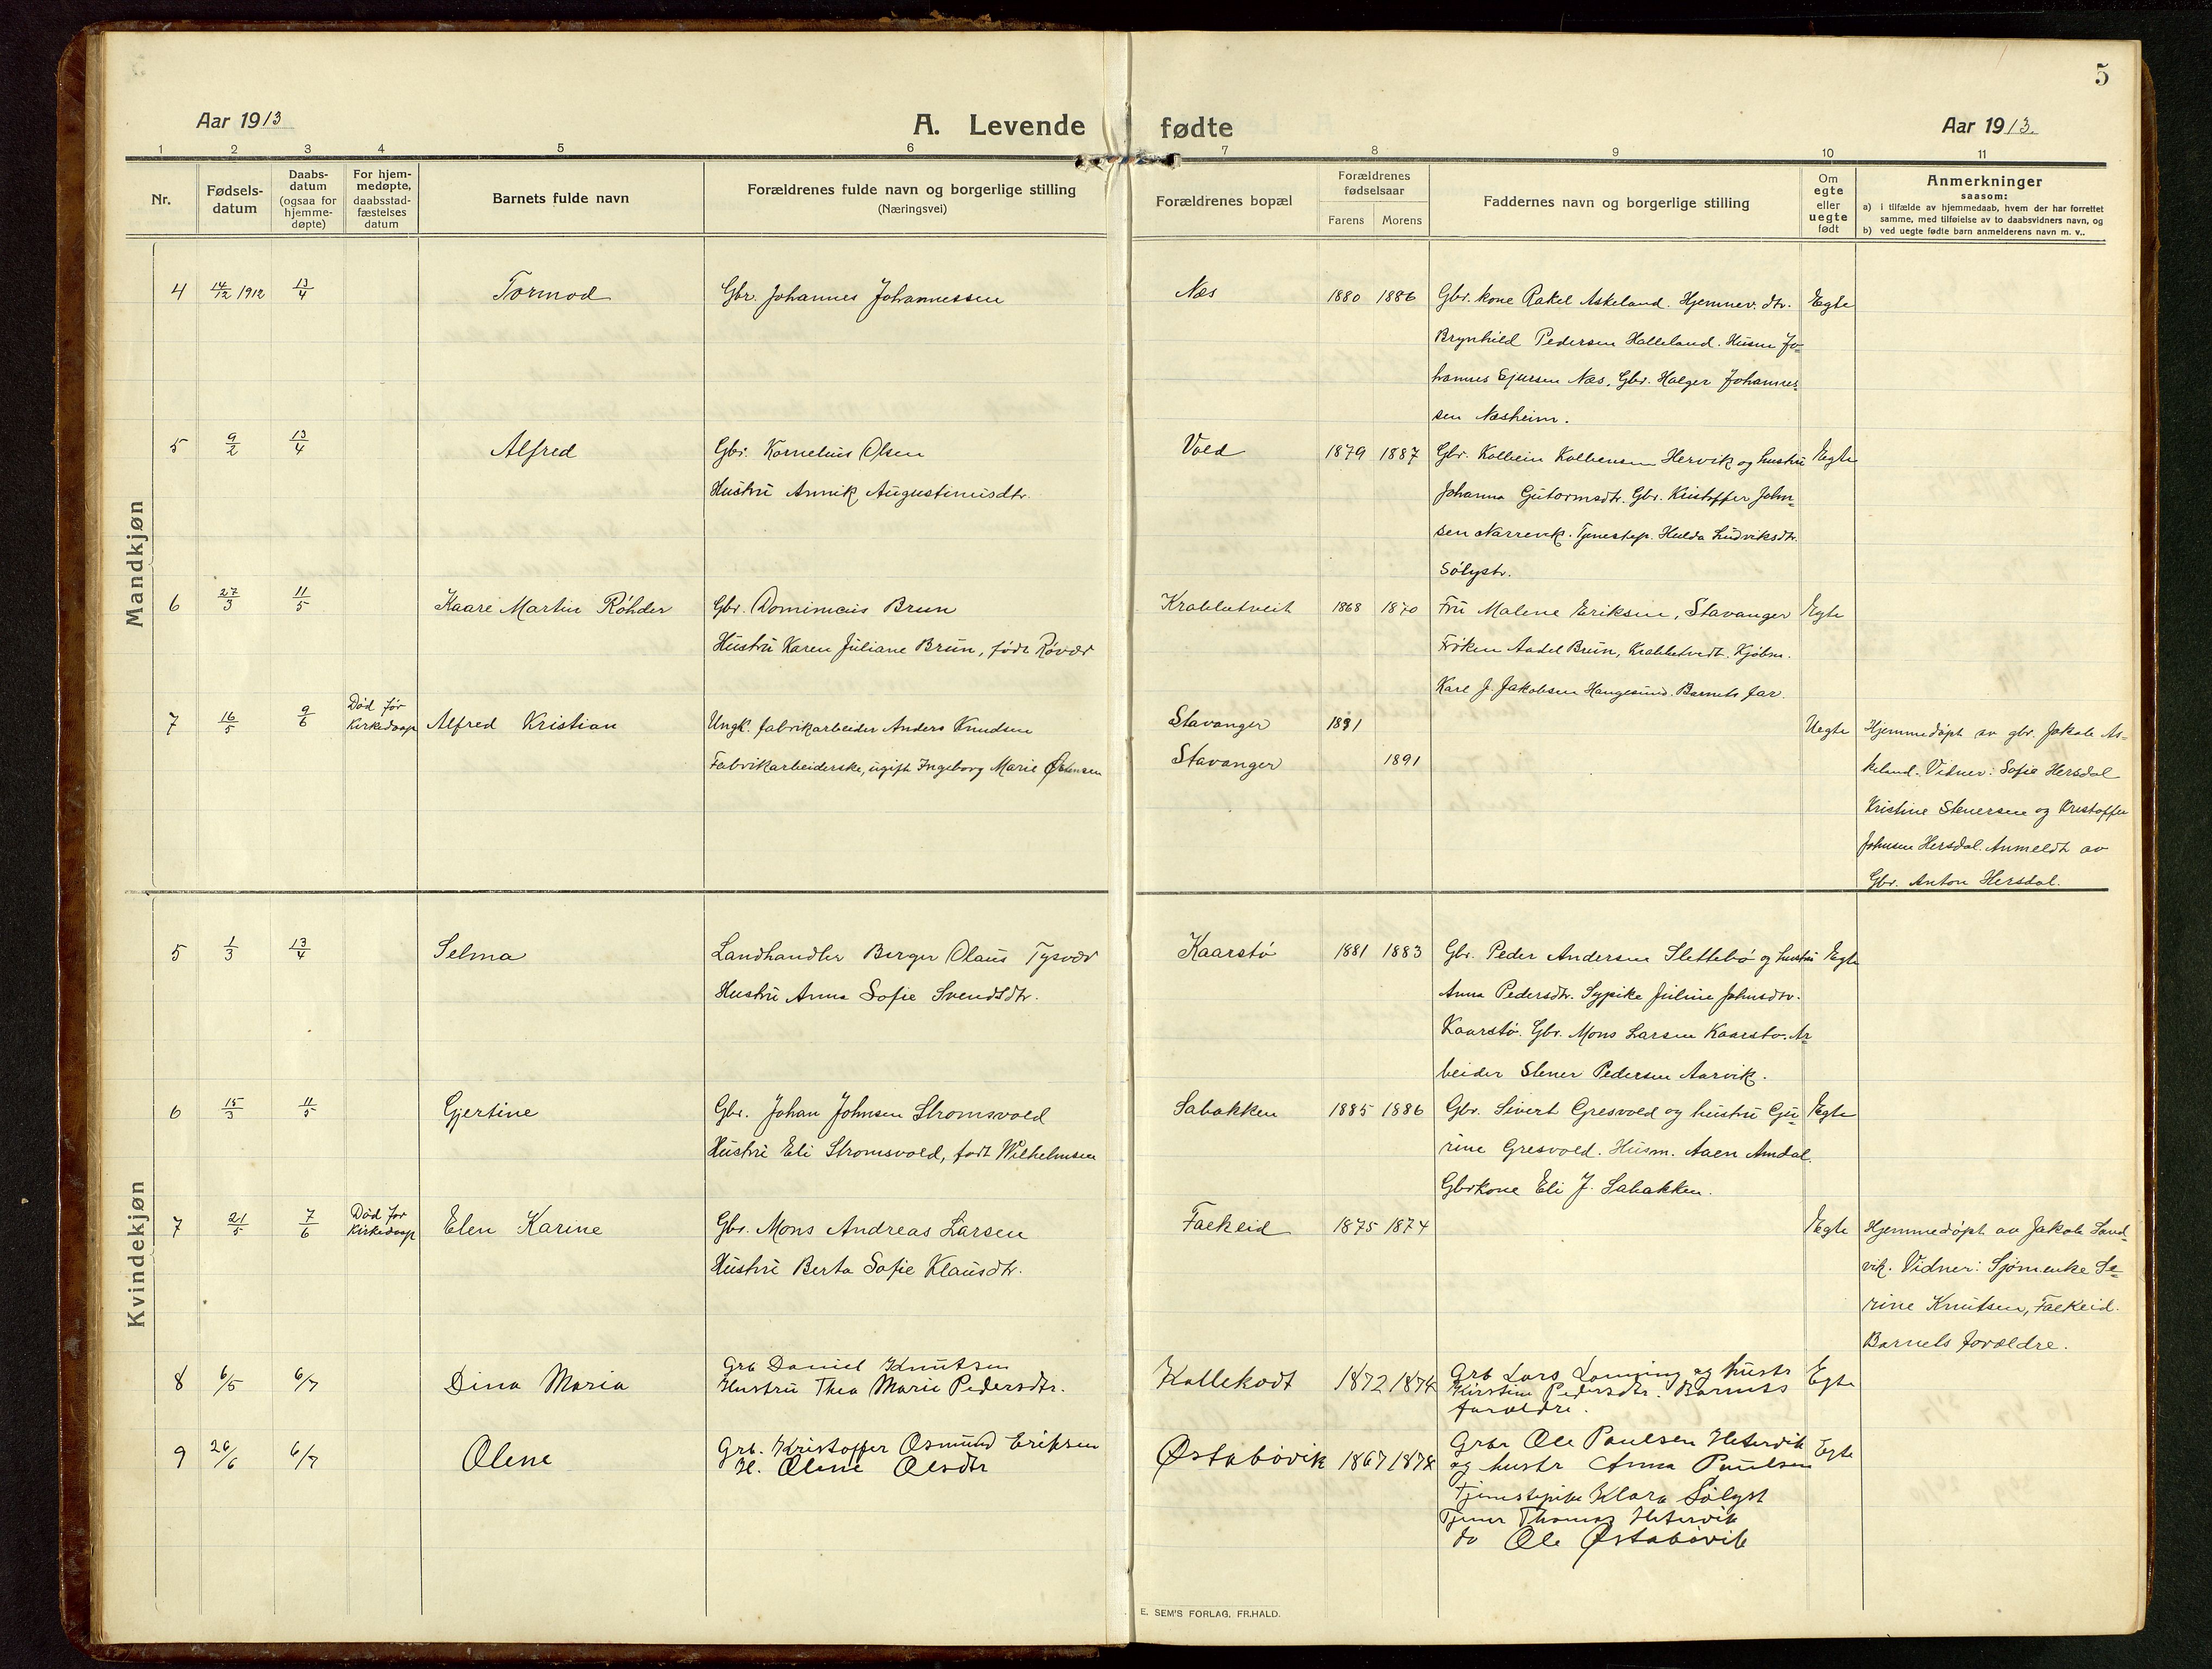 5
Aar 1913
A. Levende fødte
Aar 1913.
1 2 3 4 5 6 7 8 9 10 11
Nr.
Fødsels-
datum
Daabs-
datum
(ogsaa for
hjemme-
døpte)
For hjem-
medøpte,
daabsstad-
fæstelses
datum
Barnets fulde navn
Forældrenes fulde navn og borgerlige stilling
(Næringsvei)
Forældrenes bopæl
Forældrenes
fødselsaar
Farens Morens
Faddernes navn og borgerlige stilling
Om
egte
eller
uegte
født
Anmerkninger
saasom:
a) i tilfælde av hjemmedaab, hvem der har forrettet
samme, med tilføielse av to daabsvidners navn, og
b) ved uegte fødte barn anmelderens navn m. v..
Mandkjøn
4 14/12 1912 13/4 Tormod Gbr. Johannes Johannessen Næs 1880 1886 Gbr. kone Rakel Askeland. Hjemmev. dtr. Egte
Brynhild Pedersen Halleland. Husm Jo-
hannes Ejursen Næs, Gbr. Holger Johannes-
sen Næsheim.
5 9/2 13/4 Alfred Gbr. Kornelius Olsen Vold 1879 1887 Gbr. Kolbein Kolbensen Hervik og hustru Egte
Hustru Annik Augustinusdtr. Johanna Gutormsdtr. Gbr. Kristoffer John-
sen Narrevik. Tjenestep. Hulda Ludviksdtr.
Sölystr.
6 27/3 11/5 Kaare Martin Röhder Gbr. Dominicus Brun Krabbetveit 1868 1870 Fru Malene Eriksen, Stavanger Egte
Hustru Karen Juliane Brun, født Røvær Frøken Aadel Brun, Krabbetvedt. Kjøbm.
Karl J. Jakobsen Haugesund. Barnets far.
7 16/5 9/6 Död för
Kirkedaap Alfred Kristian Ungk. fabrikarbeider Anders Knudsen Stavanger 1891 Uegte Hjemmedøpt av gbr. Jakob As-
Fabrikarbeiderske, ugift Ingeborg Marie Østensen Stavanger 1891 keland. Vidner: Sofie Hersdal
Kristine Stenersen og Kristoffer
Johnsen Hersdal. Anmeldt av
Gbr. Anton Hersdal.
Kvindekjøn
5 1/3 13/4 Selma Landhandler Berger Olaus Tysvær Kaarstö 1881 1883 Gbr. Peder Andersen Slettebö og hustru Egte
Hustru Anna Sofie Svendsdtr. Anna Pedersdtr. Sypike Juline Johnsdtr.
Kaarstö. Gbr. Mons Larsen Kaarstö. Ar-
beider Stener Pedersen Aarvik.
6 15/3 11/5 Gjertine Gbr. Johan Johnsen Stromsvold Sabakken 1885 1886 Gbr. Sivert Gresvold og hustru Gu- Egte
Hustru Eli Stromsvold, født Wilhelmsen rine Gresvold. Husm. Aaen Amdal.
Gbrkone Eli J. Sabakken.
7 21/5 7/6 Död for
Kirkedaap Elen Karine Gbr. Mons Andreas Larsen Falkeid 1875 1874 Egte Hjemmedøpt av Jakob Sand-
Hustru Berta Sofie Klausdtr. vik. Vidner: Sjømenke Se-
rine Knutsen, Falkeid.
Barnets forældre.
8 6/5 6/7 Dina Maria Grb Daniel Knutsen
Hustru Thea Marie Pedersdtr. Kallekodt 1872 1874 Grb Lars Lønning og hustr Egte
Kirstine Pedersdtr. Barnets
forældre.
9 26/6 6/7 Olene Grb. Kristoffer Osmund Eriksen Østabövik 1867 1878 Grbr Ole Paulsen Hetervik Egte
H. Olene Olsdtr og hustr Anna Paulsen
Tjenestepike Klara Sölyst
Tjener Thomas Hetervik
do Ole Østabövik
E. SEM'S FORLAG, FR.HALD.